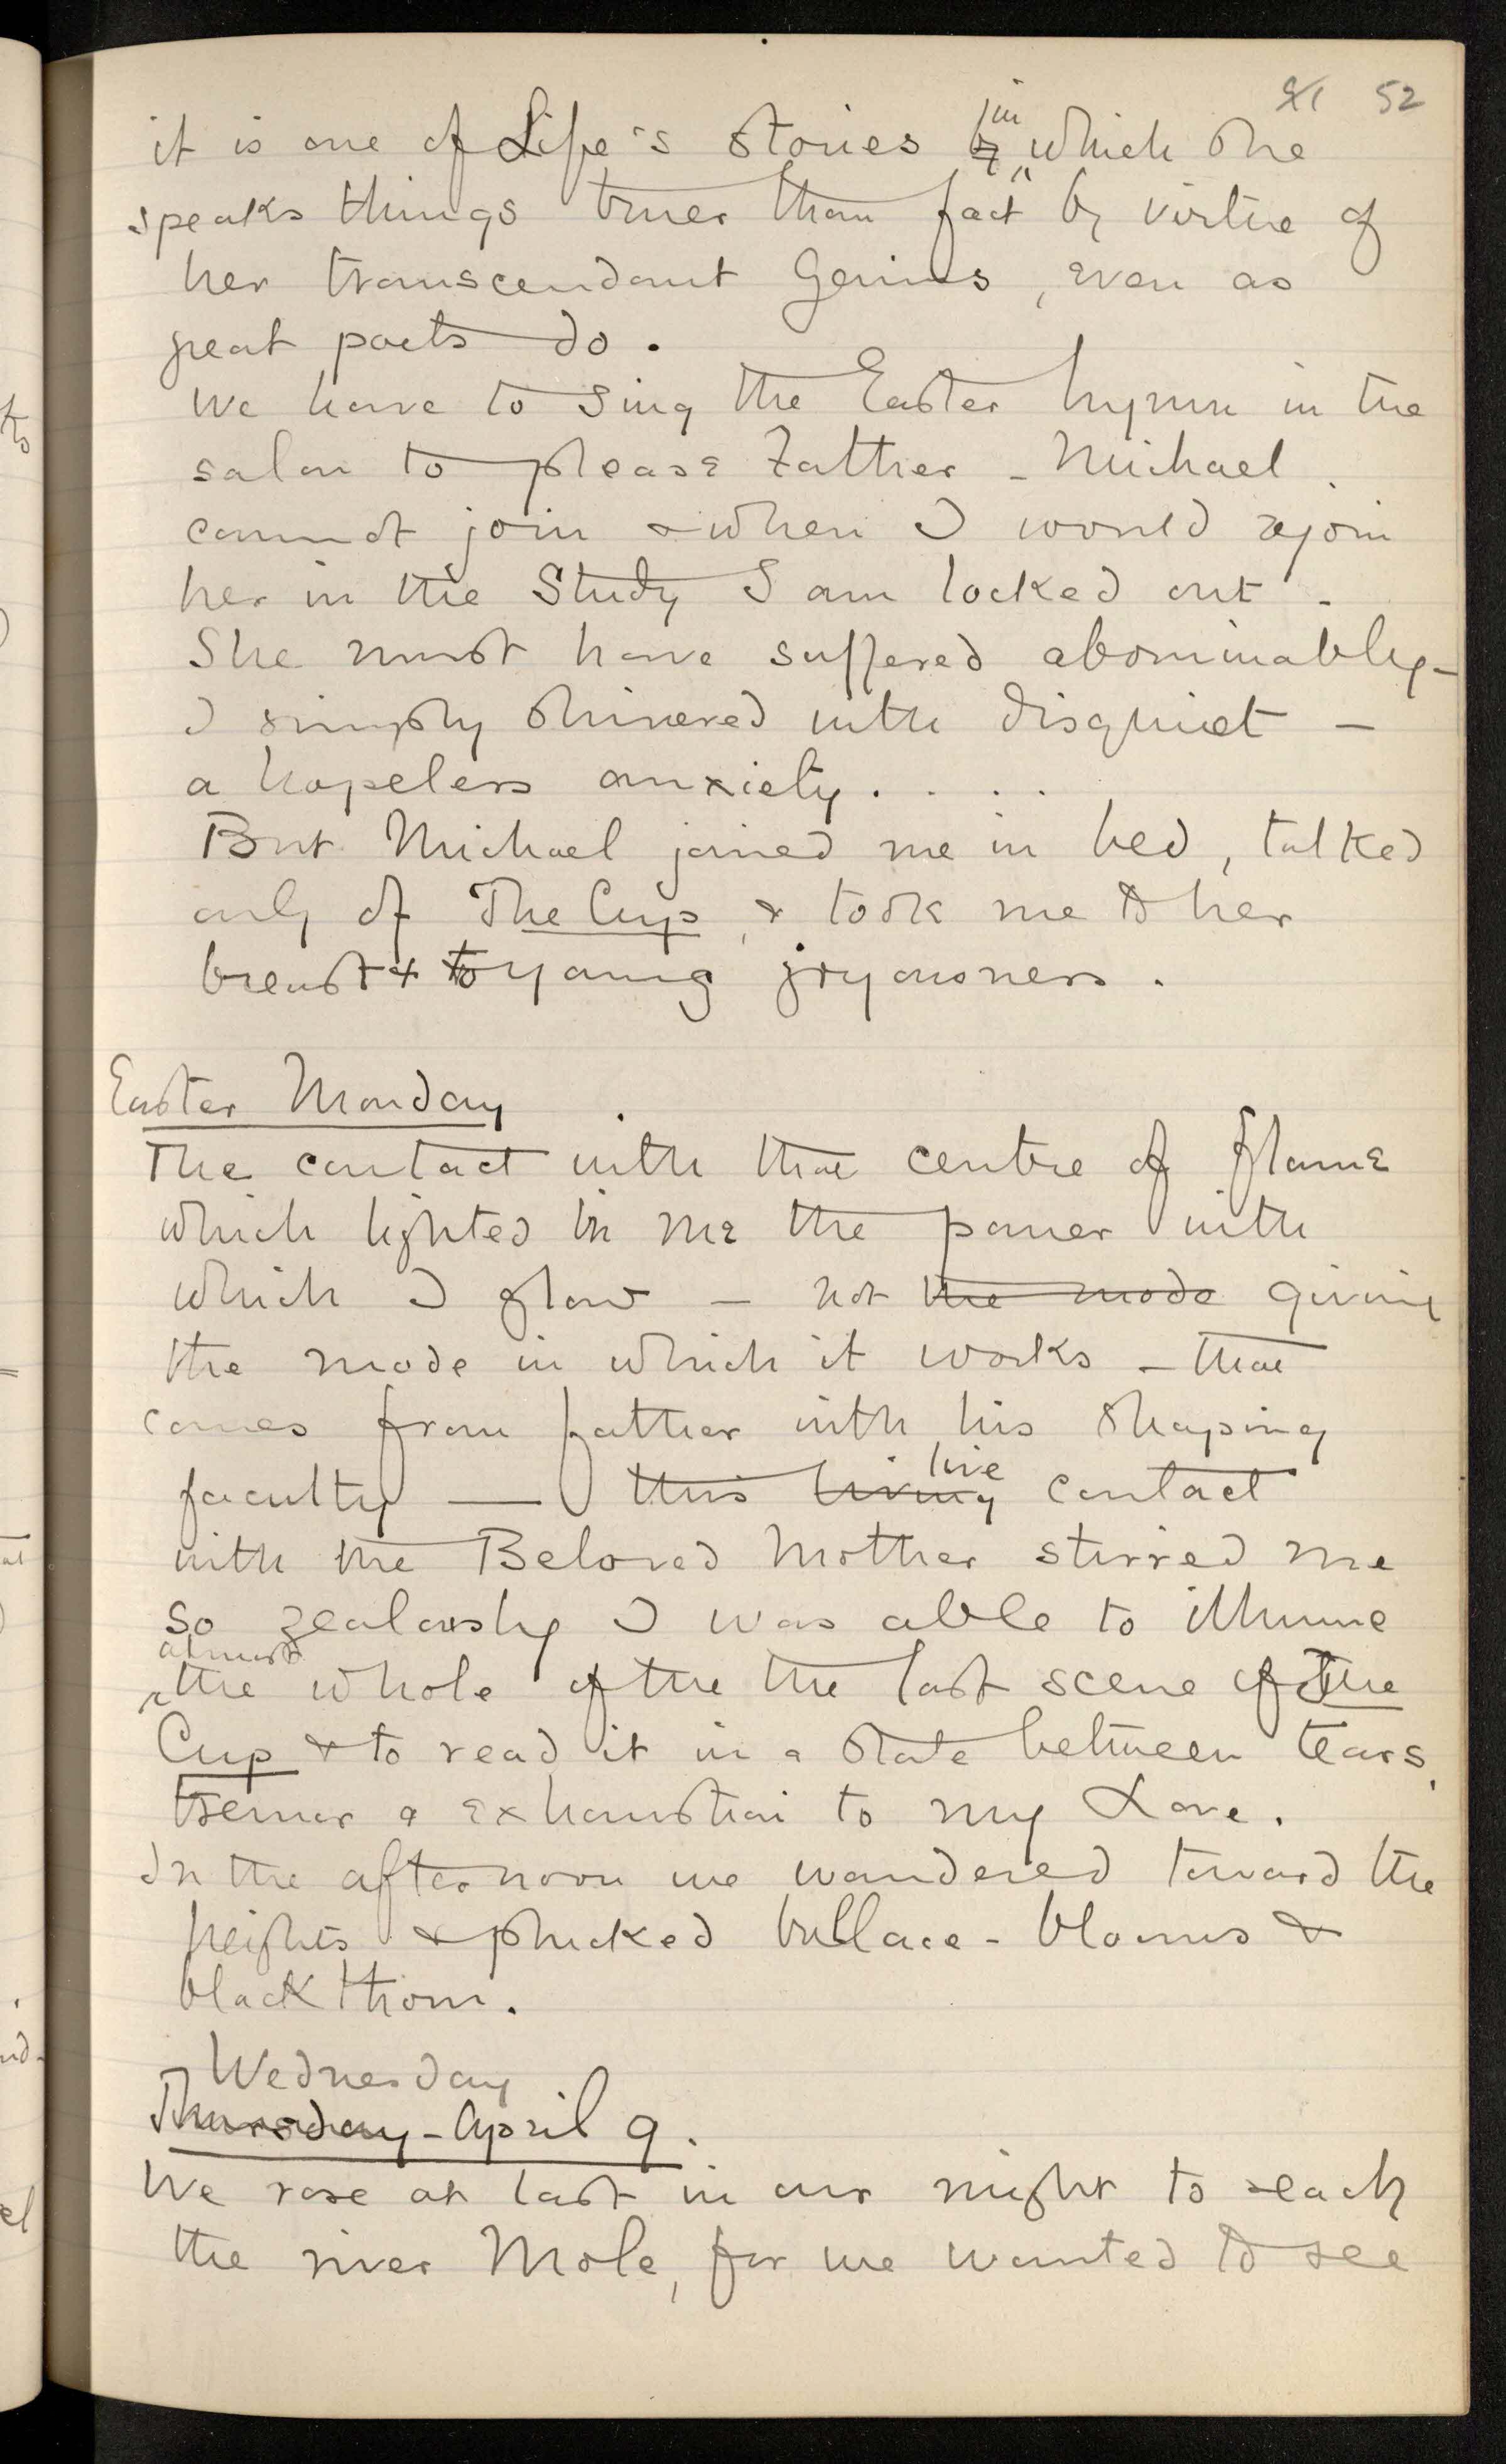 52
it is one of Life's stories in which she
speaks things truer than fact by virtue of
her transcendant Genius, even as
great poets do.
We have to sing the Easter hymn in the
salon to please Father - Michael
cannot join & when I would rejoin
her in the Study I am locked out -
She must have suffered abominably -
I simply shivered with disquiet -
a hopeless anxiety. . . .
But Michael joined me in bed, talked
only of The Cup, & took me to her
breast & to young joyousness.
Easter Monday
The contact with that centre of flame
which lighted in me the power with
which I glow - not the mode giving
the mode in which it works - that
comes from father with his shaping
faculty — this living live contact
with the Beloved Mother stirred me
so zealously I was able to illumine
almost
the whole of the the last scene of The
Cup & to read it in a state between tears,
tremor & exhaustion to my Love.
In the afternoon we wandered toward the
heights & plucked bullace-blooms &
blackthorn.
Wednesday
Thursday - April 9.
We rose at last in our might to reach
the river Mole, for we wanted to see